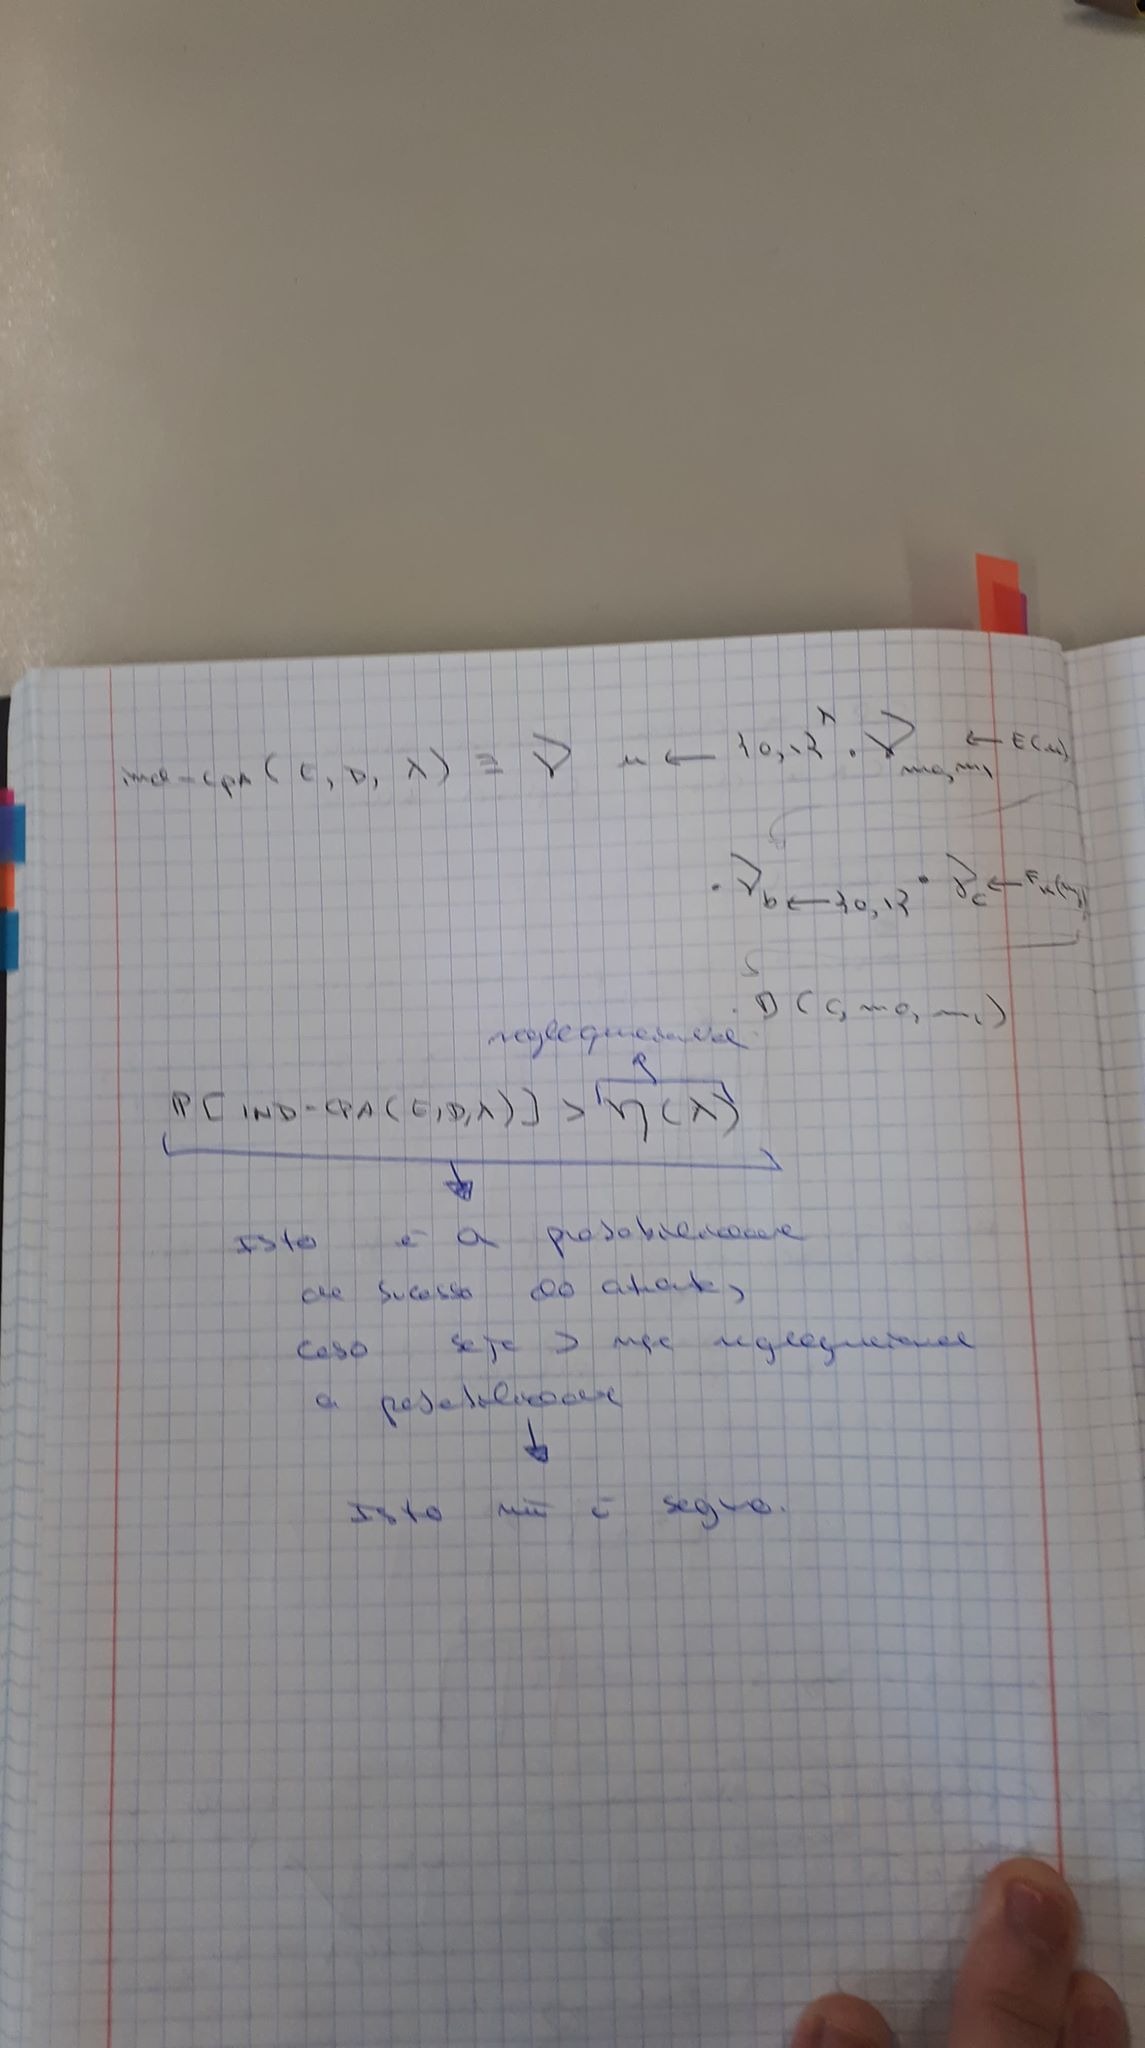 ind-CPA(E, D, λ) ≡ ∇ u ← {0,1}^λ . ∇ m0,m1 ← E(u)
. ∇ b ← {0,1} . ∇ c ← Fu(m
. D(c, m0, m1)
negligenciável
P[IND-CPA(E,D,λ)] > η(λ)
Isto é a probabilidade
de sucesso do atack,
caso seja > que negligenciável
a probabilidade
Isto não é seguro.